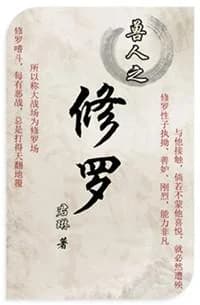 兽人之
修罗
君琳 著
修罗性子执拗、善妒、刚烈,能力非凡
与他接触,倘若不蒙他喜悦,就必然遭殃
修罗嗜斗,每有恶战,总是打得天翻地覆
所以称大战场为修罗场